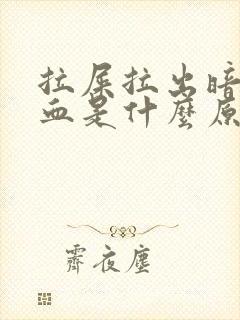 拉屎拉出暗
血是什麼原
霽夜塵